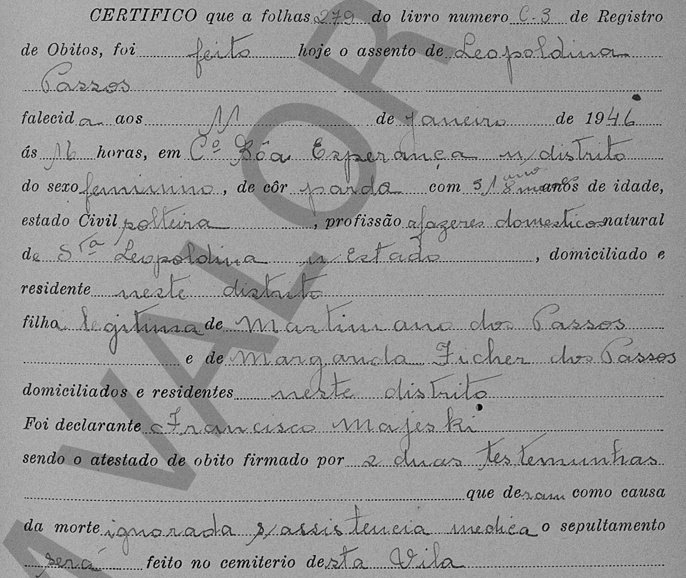 CERTIFICO que a folhas 279 do livro numero C-3 de Registro
de Obitos, foi feito hoje o assento de Leopoldina
Passos
falecida aos 11 de janeiro de 1946
ás 16 horas, em Cº Bôa Esperança n/distrito
do sexo feminino, de côr parda com anos de idade,
estado Civil solteira, profissão afazeres domesticos natural
de Sta Leopoldina n/Estado, domiciliado e
residente neste distrito
filha legitima de Martimano dos Passos
e de Margarida Ficher dos Passos
domiciliados e residentes neste distrito
Foi declarante Francisco Majeski
sendo o atestado de obito firmado por 2 duas testemunhas
que deram como causa
da morte ignorada s/assistencia medica o sepultamento
será feito no cemiterio desta Vila
VALOR